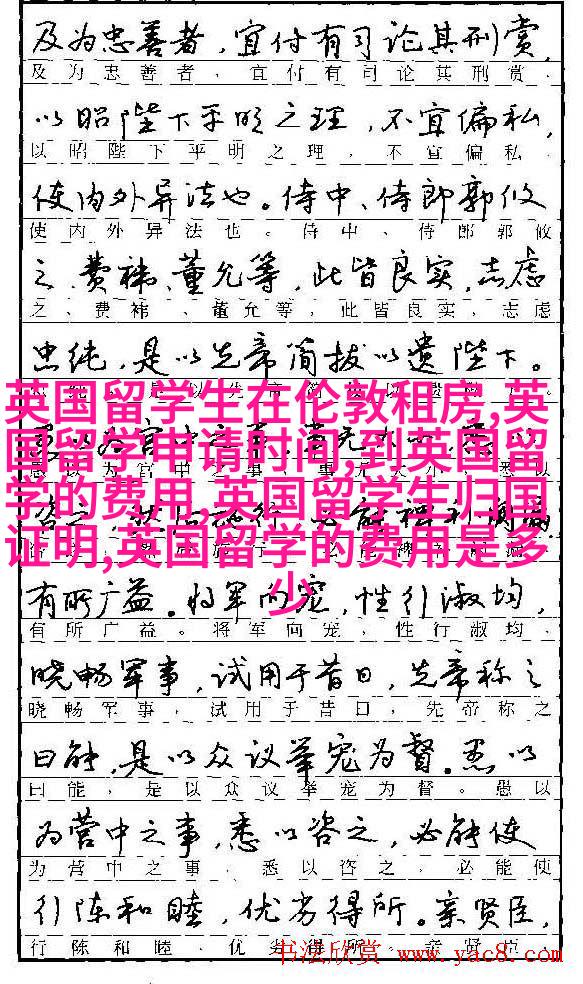 及为忠善者，宜付有司论其刑赏，
及为忠善者，宜付有司论其刑赏，
以昭陛下平明之理，不宜偏私，
以昭陛下平明之理，不宜偏私，
使内外异法也。侍中、侍郎郭攸
使内外异法也。侍中、侍郎郭攸
之、费祎、董允等，此皆良实，志虑
之、费祎、董允等，此皆良实，志虑
忠纯，是以先帝简拔以遗陛下。
英国留学生在伦敦租房,英
国留学申请时间,到英国留
学的费用,英国留学生归国
证明,英国留学的费用是多
少
有所广益。将军向宠，性行淑均，
有所广益。将军向宠，性行淑均，
晓畅军事，试用于昔日，先帝称之
晓畅军事，试用于昔日，先帝称之
曰能，是以众议举宠为督。愚以
曰能，是以众议举宠为督。愚以
为营中之事，悉以咨之，必能使
为营中之事，悉以咨之，必能使
行阵和睦，优劣得所。亲贤臣，
行陈和睦，优劣得所。亲贤臣，
书法欣赏 www.yac8.com